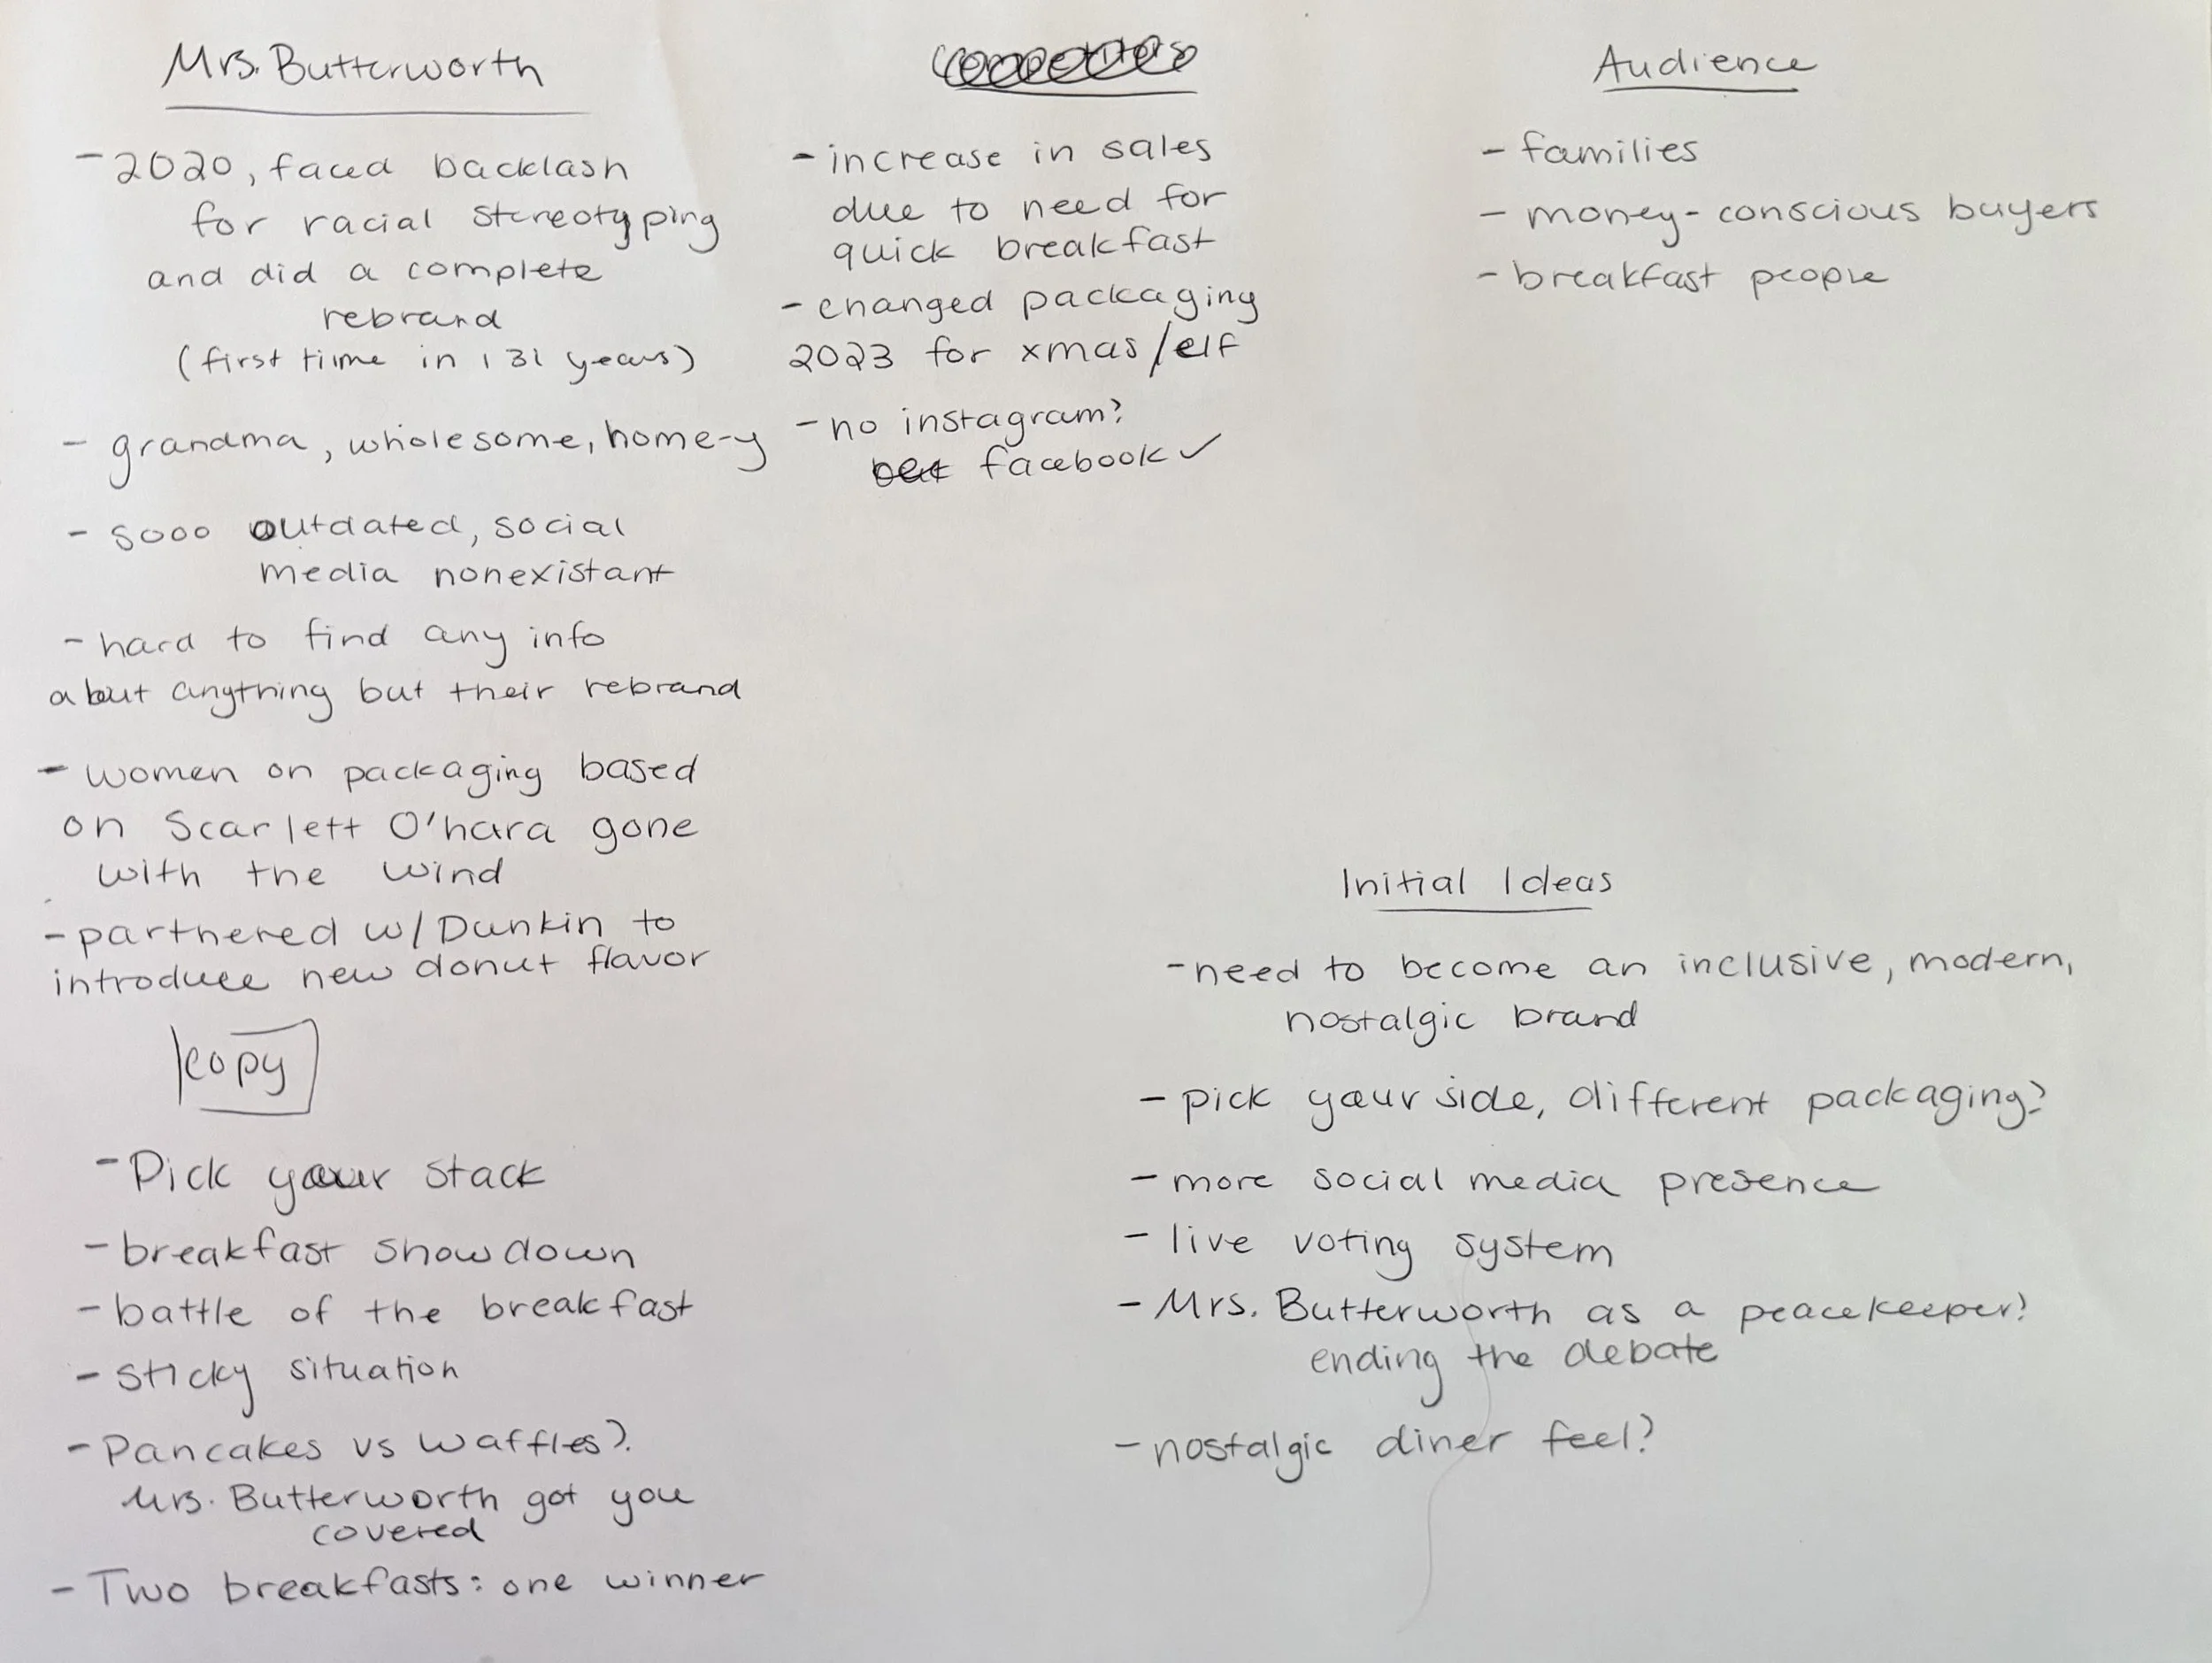 Mrs. Butterworth
- 2020, faced backlash
for racial stereotyping
and did a complete
rebrand
(first time in 131 years)
- grandma, wholesome, home-y
- sooo outdated, social
media nonexistant
- hard to find any info
about anything but their rebrand
- women on packaging based
on Scarlett O'hara gone
with the wind
- partnered w/ Dunkin to
introduce new donut flavor
copy
- Pick your stack
- breakfast showdown
- battle of the breakfast
- sticky situation
- Pancakes vs waffles?
Mrs. Butterworth got you
covered
- Two breakfasts: one winner
- increase in sales
due to need for
quick breakfast
- changed packaging
2023 for xmas/elf
- no instagram?
but facebook ✓
Audience
- families
- money-conscious buyers
- breakfast people
Initial Ideas
- need to become an inclusive, modern,
nostalgic brand
- pick your side, different packaging?
- more social media presence
- live voting system
- Mrs. Butterworth as a peacekeeper?
ending the debate
- nostalgic diner feel?